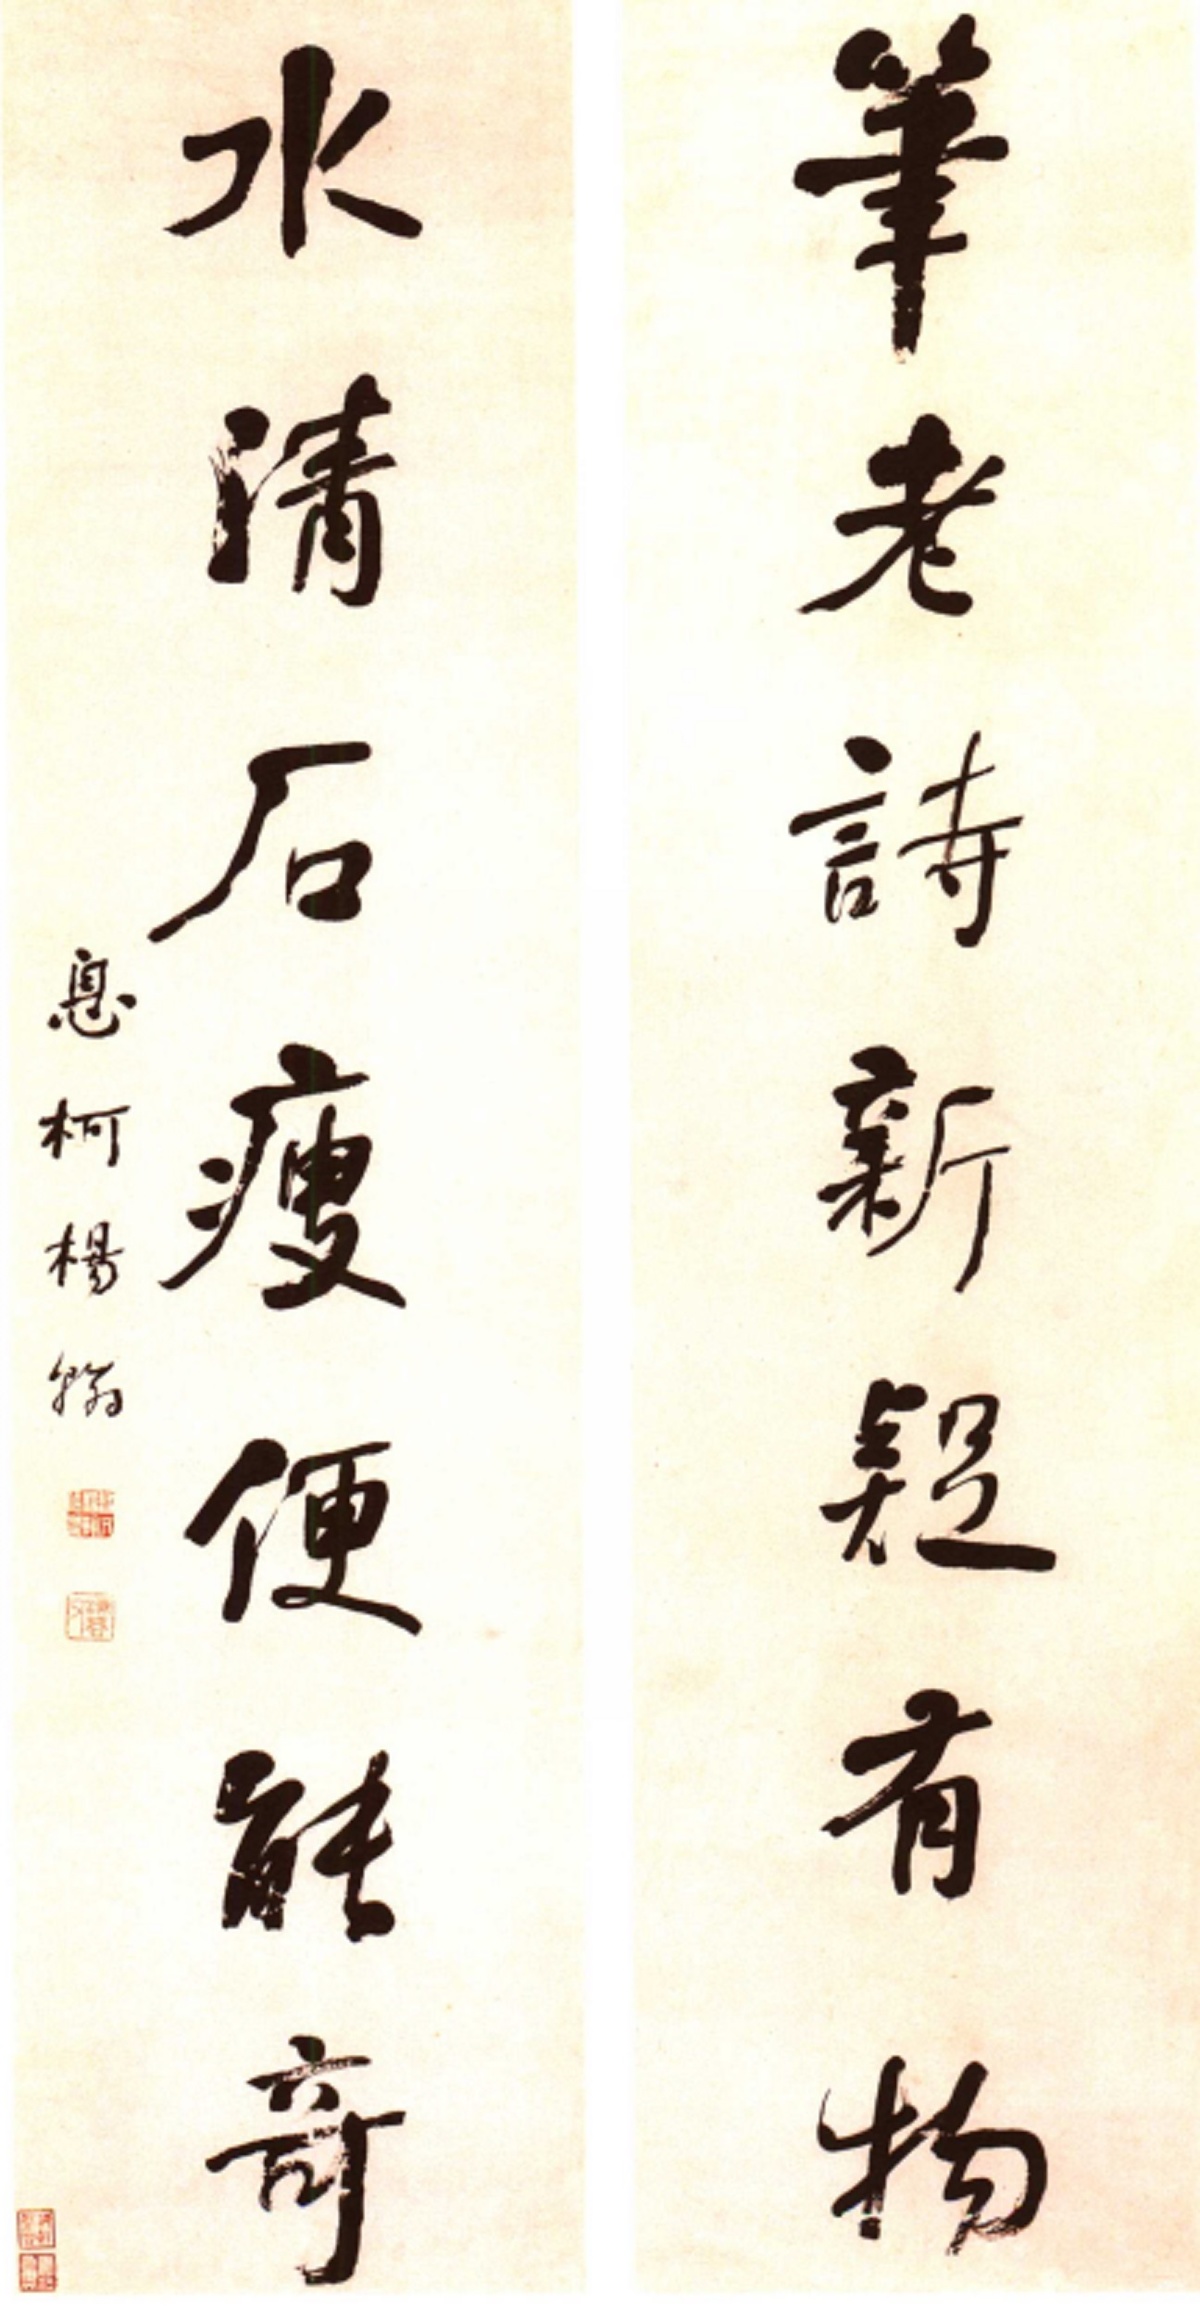 筆老詩新疑有物
水清石瘦便能奇
息柯楊翰